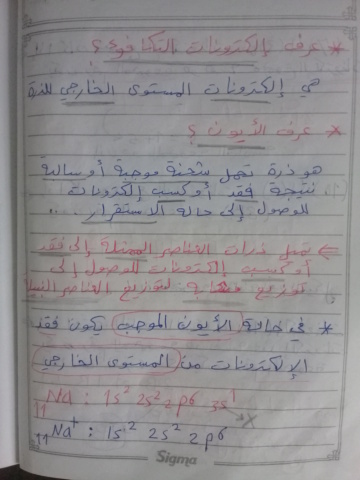 * عرف إلكترونات التكافؤ ؟
هي إلكترونات المستوى الخارجي للذرة
* عرف الأيون ؟
هو ذرة تحمل شحنة موجبة أو سالبة
نتيجة فقد أو كسب إلكترونات
للوصول إلى حالة الاستقرار ....
⇐ تميل ذرات العناصر الممثلة إلى فقد
أو كسب إلكترونات للوصول إلى
توزيع مشابه لتوزيع العناصر النبيلة
* في حالة الأيون الموجب يكون فقد
الإلكترونات من المستوى الخارجي
₁₁Na : 1s² 2s² 2p⁶ 3s¹
x
₁₁Na⁺ : 1s² 2s² 2p⁶
Sigma